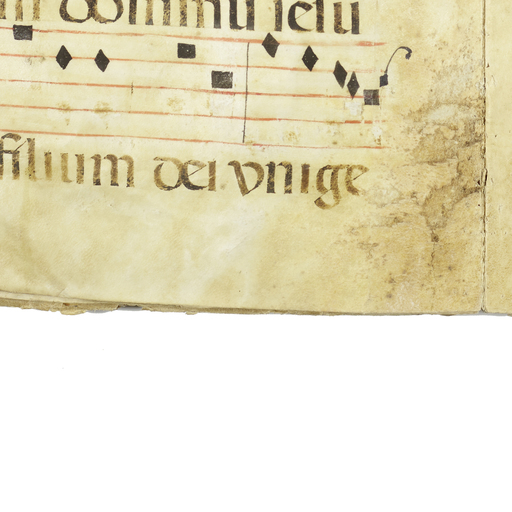 dominu iesu
filium dei vnige